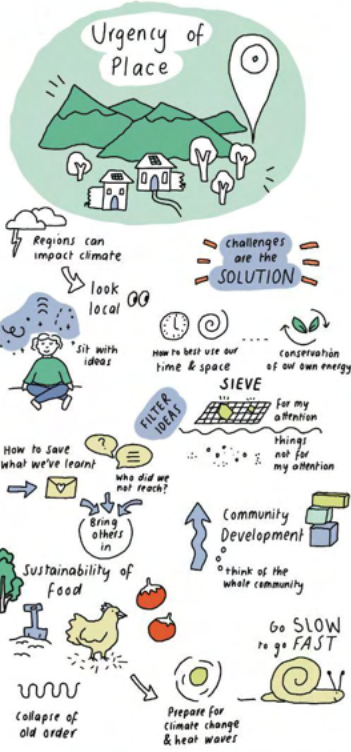 Urgency of
Place
Regions can
impact climate
look
local
challenges
are the
SOLUTION
sit with
ideas
How to best use our
time & space
conservation
of our own energy
SIEVE
FILTER
IDEAS
for my
attention
things
not for
my attention
How to save
what we've learnt
?
who did we
not reach?
Bring
others
in
Community
Development
think of the
whole community
Sustainability of
Food
Go SLOW
to go FAST
Collapse of
old order
Prepare for
climate change
& heat waves